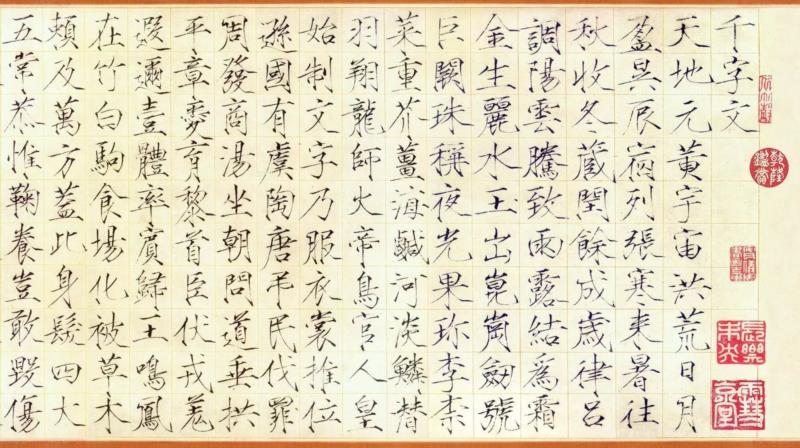 千字文
天地元黃宇宙洪荒日月
盈昃辰宿列張寒来暑往
秋收冬蔵閏餘成歲律呂
調陽雲騰致雨露結爲霜
金生麗水玉出崑崗劒號
巨闕珠稱夜光果珍李柰
菜重芥薑海鹹河淡鱗潜
羽翔龍師火帝鳥官人皇
始制文字乃服衣裳推位
遜國有虞陶唐弔民伐罪
周發商湯坐朝問道垂拱
平章愛育黎首臣伏戎羌
遐邇壹體率賓歸王鳴鳳
在竹白駒食場化被草木
賴及萬方蓋此身髮四大
五常恭惟鞠養豈敢毀傷
乾隆鑑賞
長樂未央